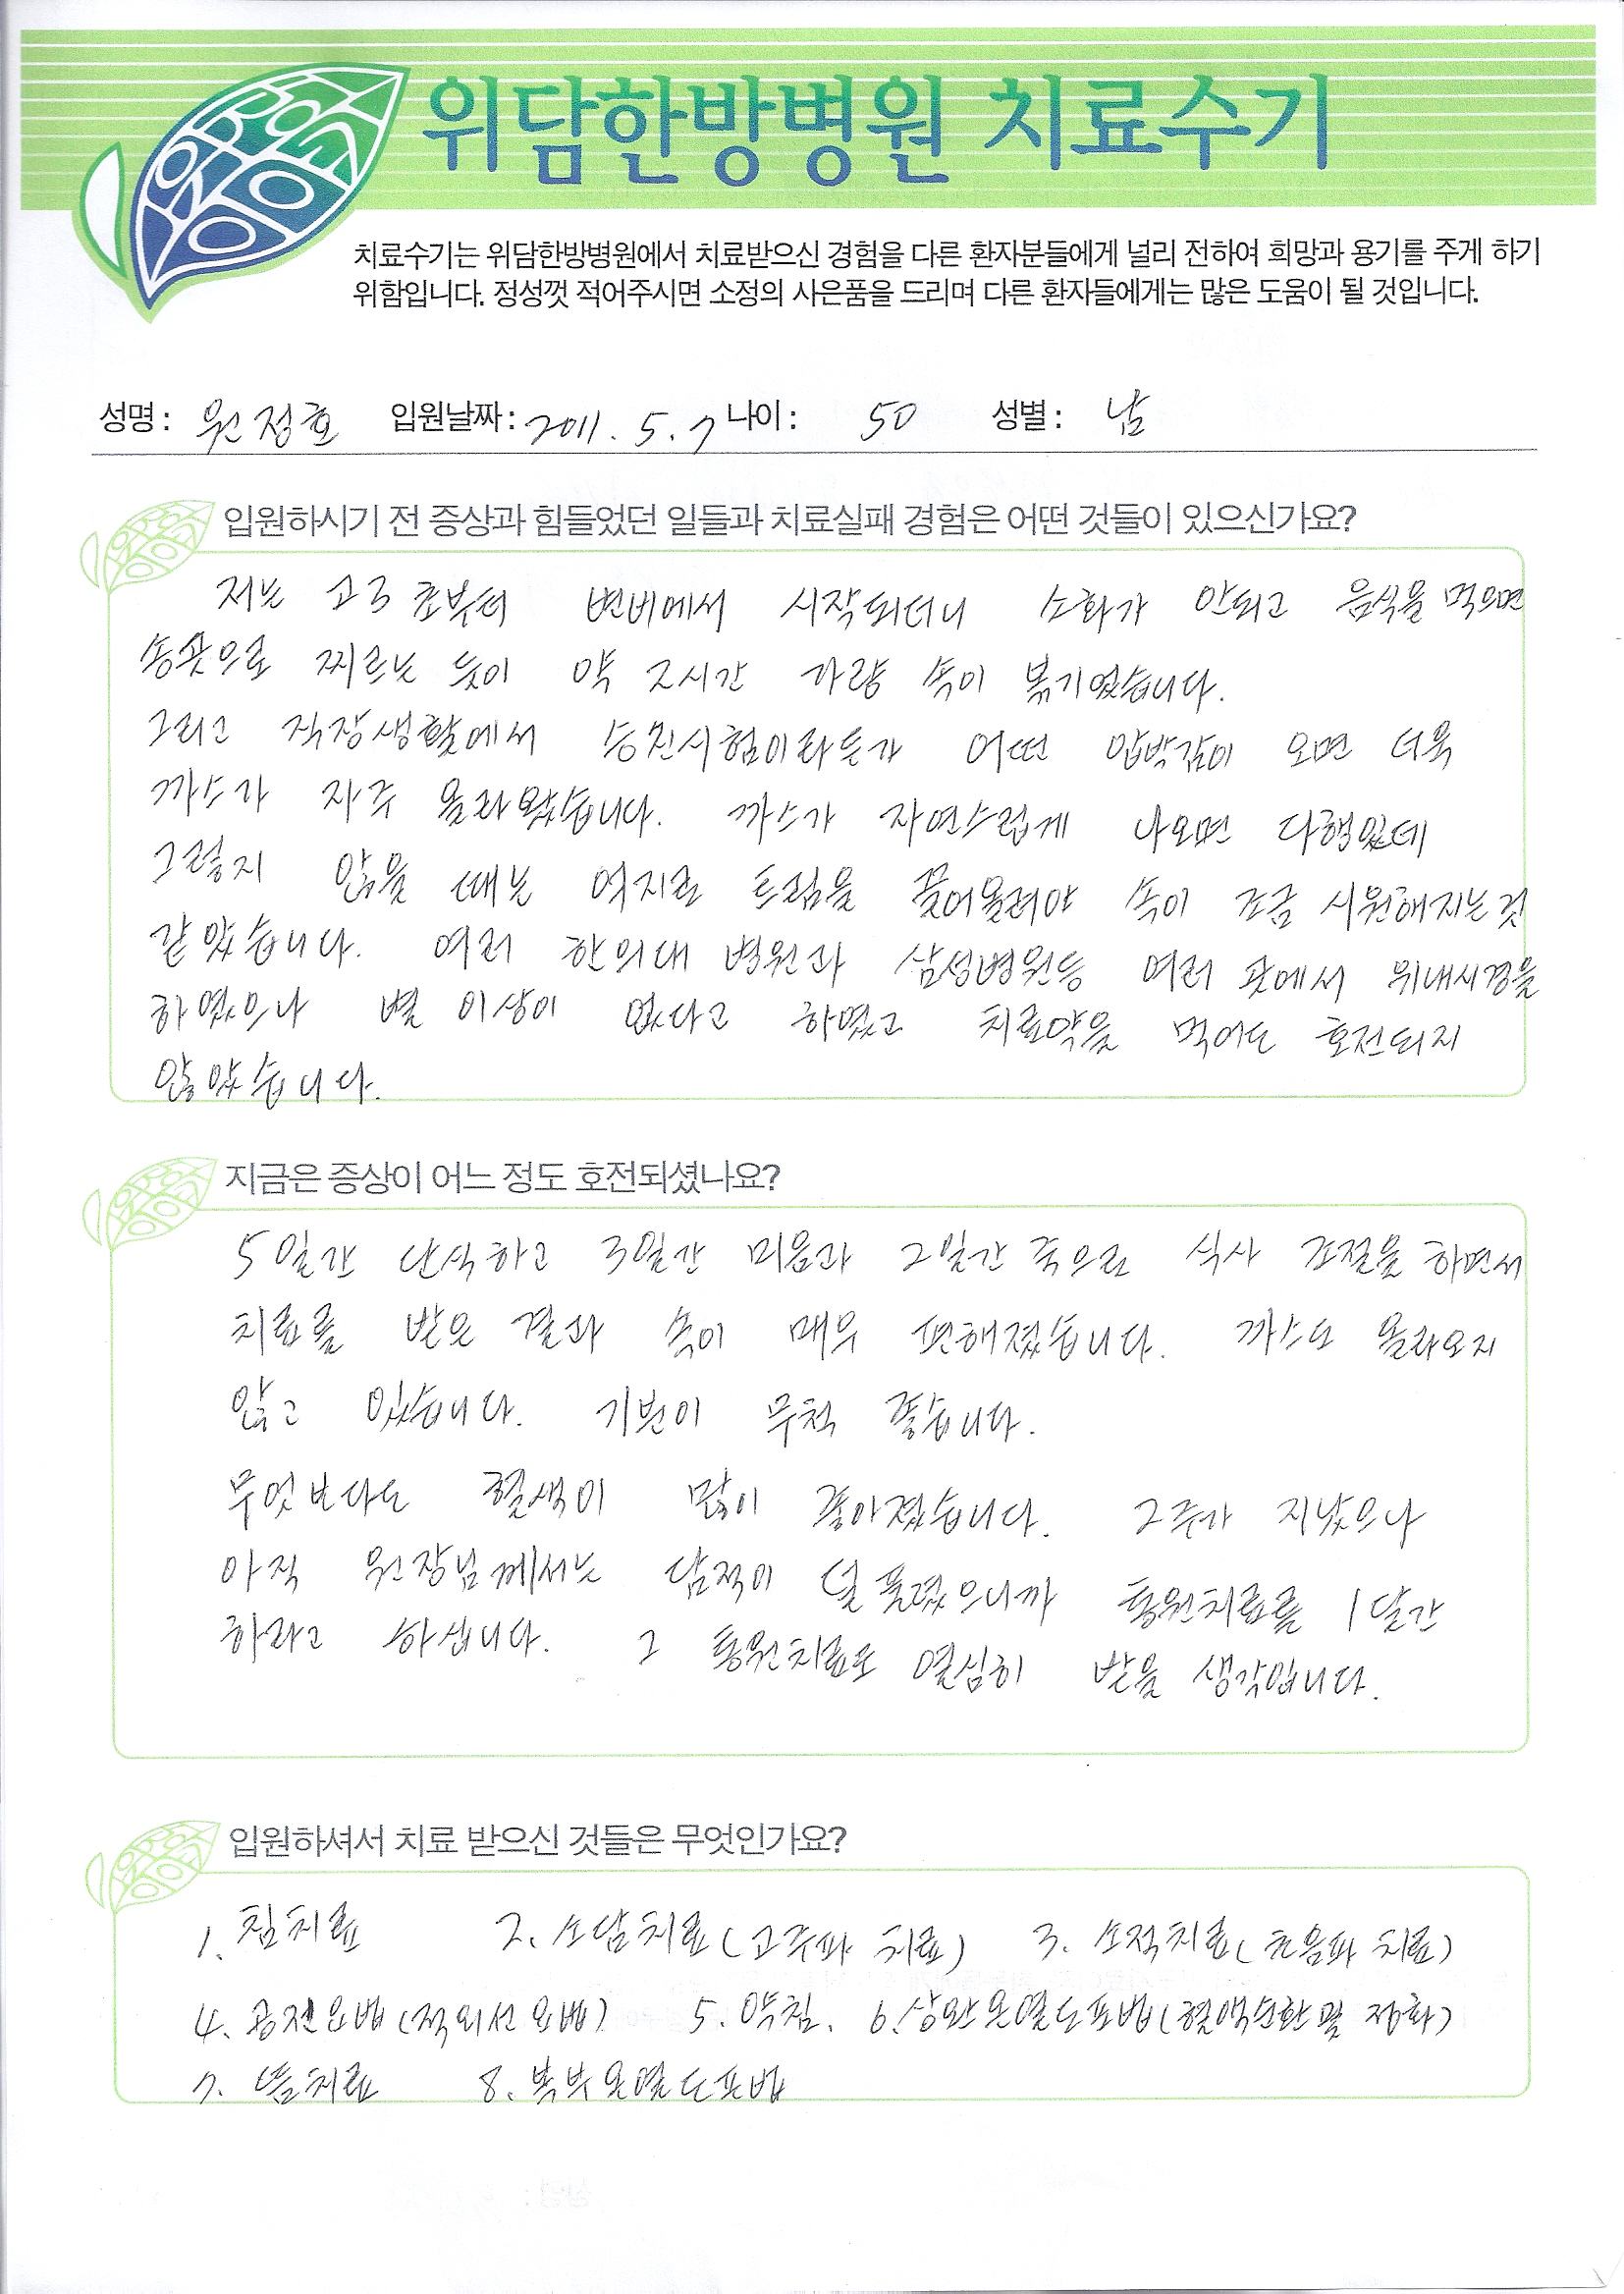 위담한방병원 치료수기
치료수기는 위담한방병원에서 치료받으신 경험을 다른 환자분들에게 널리 전하여 희망과 용기를 주게 하기
위함입니다. 정성껏 적어주시면 소정의 사은품을 드리며 다른 환자들에게는 많은 도움이 될 것입니다.
성명 : 원정호 입원날짜 : 2011. 5. 7 나이 : 50 성별 : 남
입원하시기 전 증상과 힘들었던 일들과 치료실패 경험은 어떤 것들이 있으신가요?
저는 고3 초부터 변비에서 시작되더니 소화가 안되고 음식을 먹으면
송곳으로 찌르는 듯이 약 2시간 가량 속이 볶기었습니다.
그리고 직장생활에서 승진시험이라든가 어떤 압박감이 오면 더욱
까스가 자주 올라왔습니다. 까스가 자연스럽게 나오면 다행인데
그렇지 않을 때는 억지로 트림을 끌어올려야 속이 조금 시원해지는것
같았습니다. 여러 한의대 병원과 삼성병원등 여러 곳에서 위내시경을
하였으나 별 이상이 없다고 하였고 치료약을 먹어도 호전되지
않았습니다.
지금은 증상이 어느 정도 호전되셨나요?
5일간 단식하고 3일간 미음과 2일간 죽으로 식사 조절을 하면서
치료를 받은 결과 속이 매우 편해졌습니다. 까스도 올라오지
않고 있습니다. 기분이 무척 좋습니다.
무엇보다도 혈색이 많이 좋아졌습니다. 2주가 지났으나
아직 원장님께서는 담적이 덜 풀렸으니까 통원치료를 1달간
하라고 하십니다. 그 통원치료도 열심히 받을 생각입니다.
입원하셔서 치료 받으신 것들은 무엇인가요?
1. 침치료 2. 소담치료(고주파 치료) 3. 소적치료(초음파 치료)
4. 공진요법(적외선요법) 5. 약침. 6. 상완온열도포법(혈액순환 및 정화)
7. 뜸치료 8. 복부온열도포법